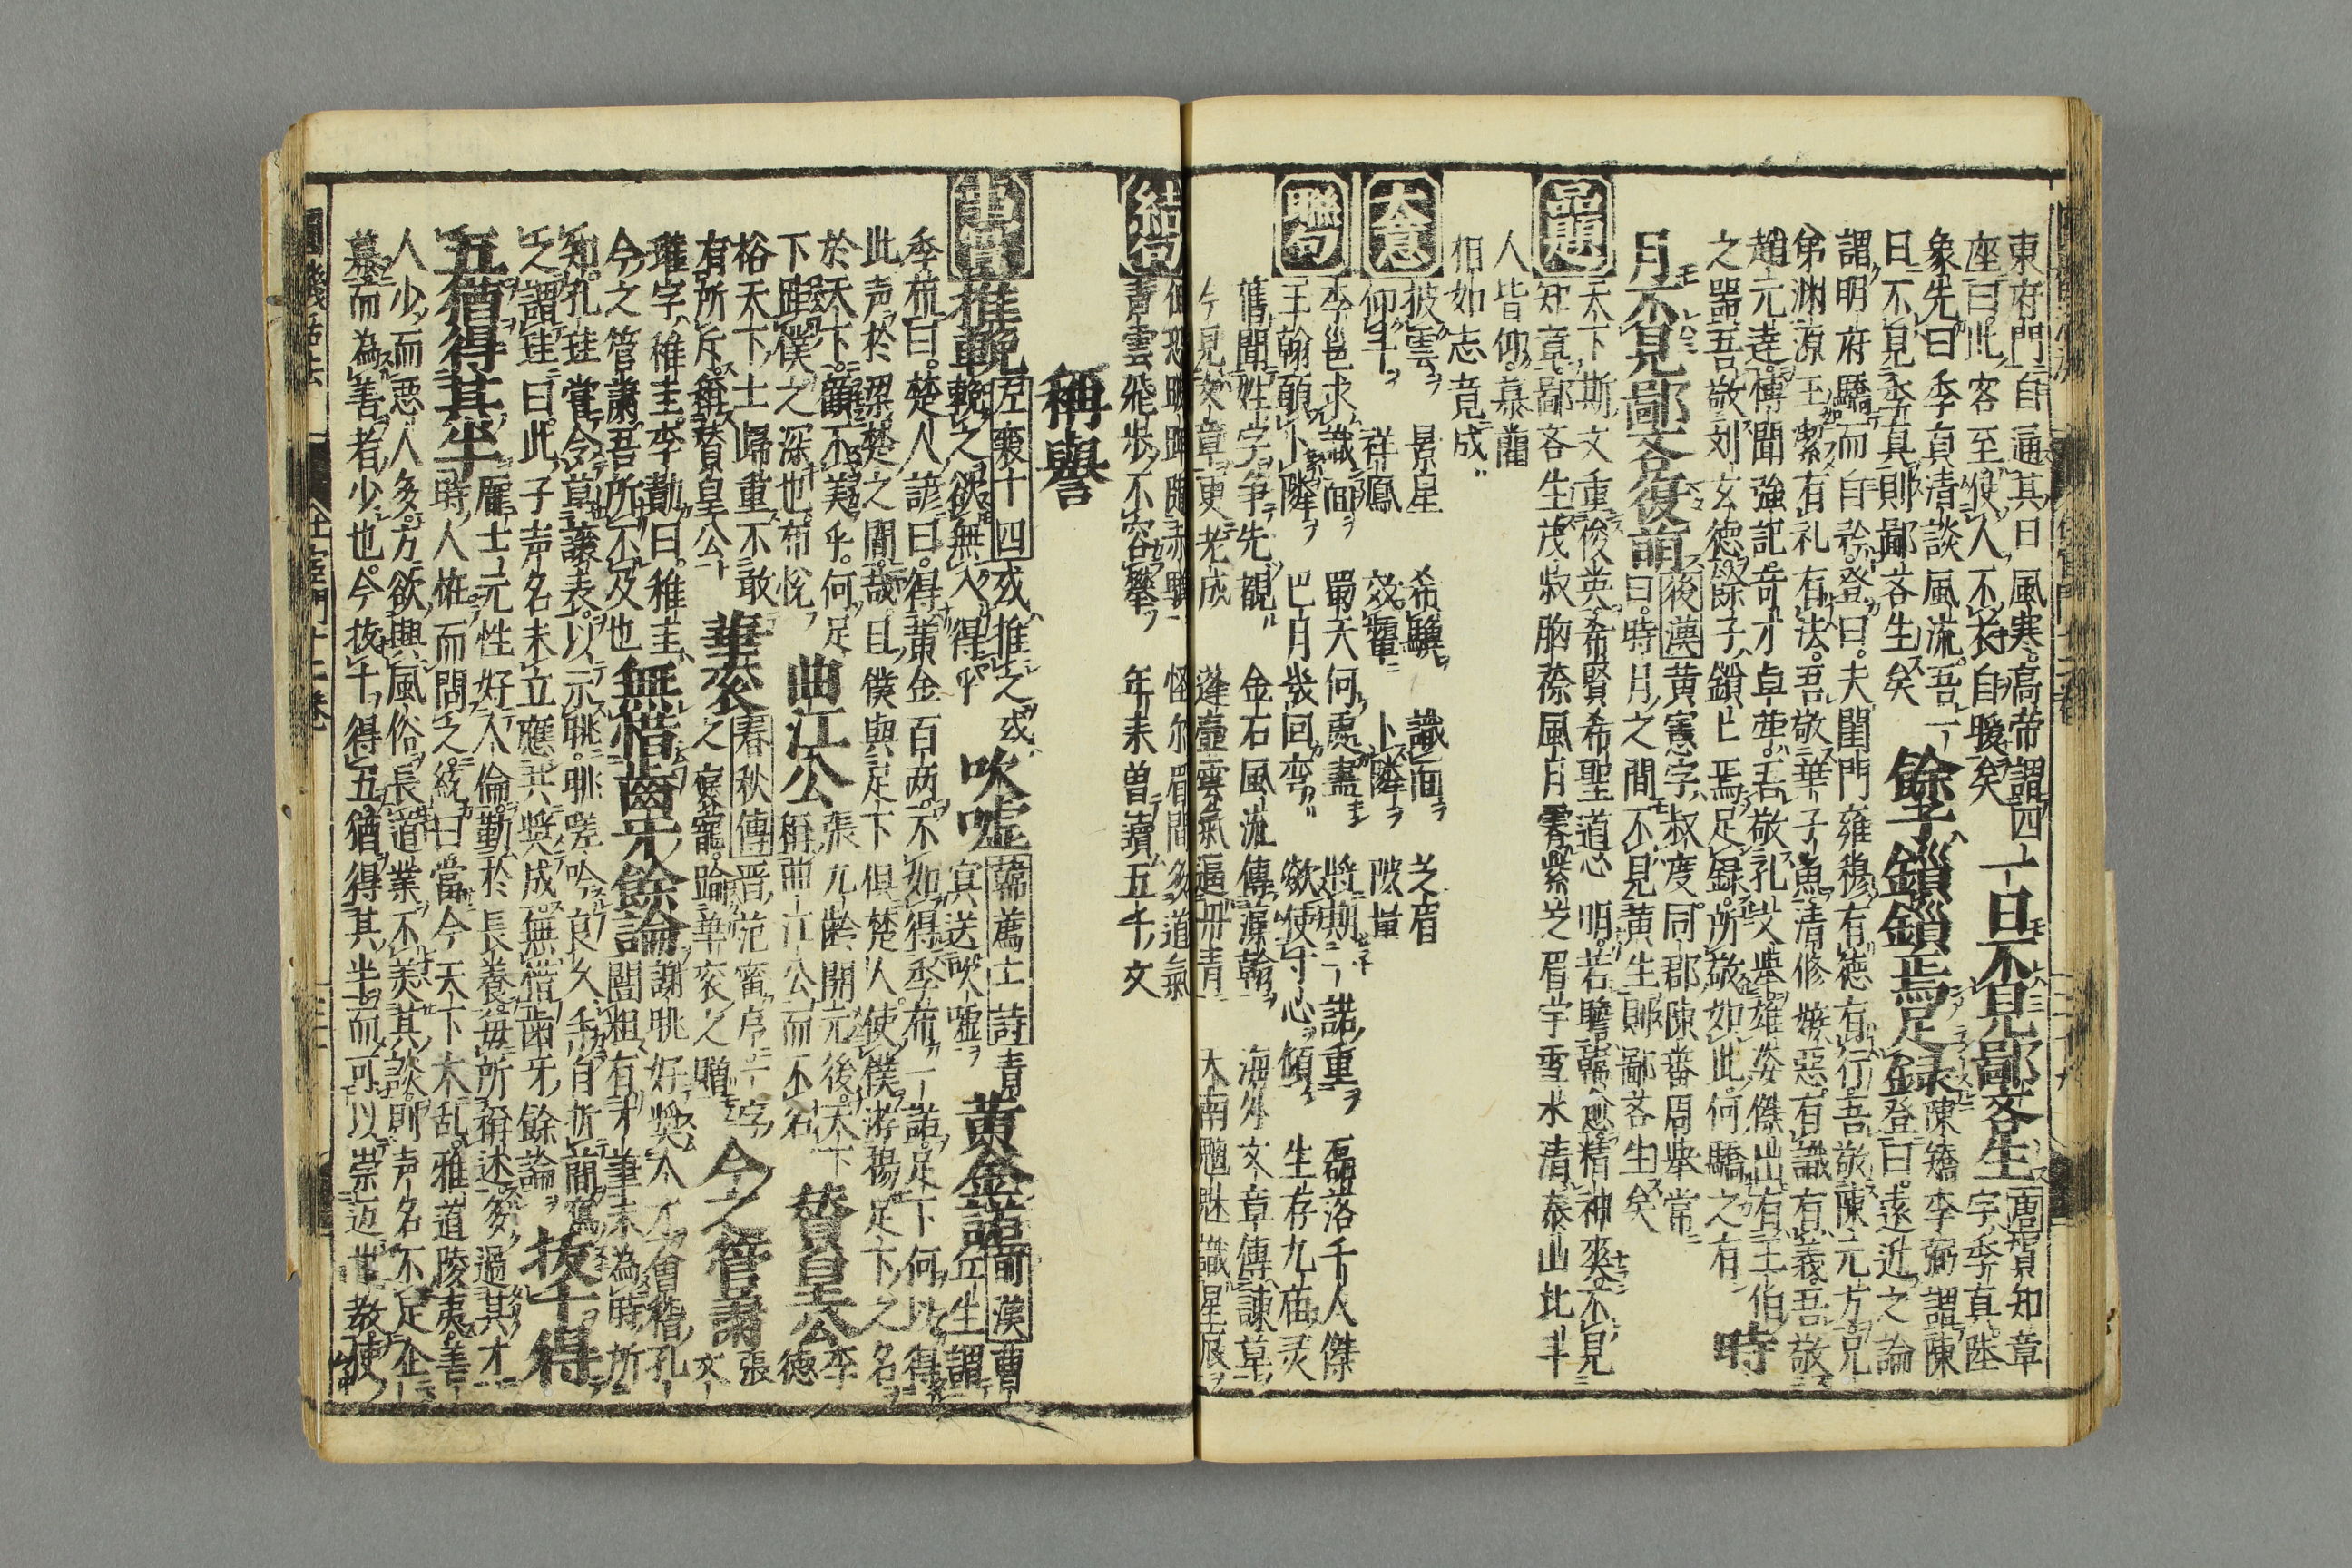 東府門自通其日風寒高帝謂四一日不見鄙吝生唐賀知章
座曰此客至使人不衣自暖矣字季真陸
象先曰季真清談風流吾一餘子鎖鎖焉足録陳矯李弼謂陳
日不見季真則鄙吝生矣登曰遠近之論
謂明府驕而自矜登曰夫閨門雍穆有徳有行吾敬陳元方兄
弟渊源玉潔有礼有法吾敬華子魚清修嫉惡有識有義吾敬
趙元達博聞強記奇才卓犖吾敬孔文举雄姿傑出有王伯
之器吾敬刘玄徳餘子鎖亡焉足録所敬如此何驕之有時
月不見鄙吝復萌後漢黄憲字叔度同郡陳蕃周举常
曰時月之間不見黄生則鄙吝生矣
品題天下斯文重俊英希賢希聖道心明若瞻韓愈精神爽不見
知章鄙吝生茂叔胸襟風月霽紫芝眉宇雪水清泰山比斗
人皆仰慕藺
相如志竟成
大意披雲景星希驥識面芝眉
仰斗祥鳳效顰卜隣陂量
聯句李邕求識面蜀天何處盡將期一諾重磊落千人傑
王翰願卜隣巴月幾回弯欲使寸心傾生存九庙灵
舊聞姓字争先覩金石風流傳藻翰海外文章傳諫草
今見文章更老成蓬壺雲氣逼丹青天南魑魅識星辰
結句但恐曉眠隨赤驥怪尓眉間多道氣
青雲飛步不容攀年来曽讀五千文
稱譽
事實推輓左襄十四或推之或吹嘘韓薦士詩青黄金諾前漢曹
輓之欲無入得乎冥送吹嘘丘生謂
季布曰楚人諺曰得黄金百两不如得季布一諾足下何以得
此声於梁楚之間哉且僕與足下俱楚人使僕游揚足下之名
於天下顧不美乎何足曲江公張九齡開元後天下賛皇公李
下距僕之深也布悅稱曲江公而不名徳
裕天下士歸重不敢華衮春秋傳晋范甯序一字今之管蕭張
有所斥稱賛皇公之寵踰華衮之贈文
瓘字稚圭李勣曰稚圭無惜齒牙餘論謝眺好奨人才會稽孔
今之管蕭吾所不及也闓粗有才筆未為時所
知孔珪嘗令草讓表以示眺眺嗟吟良久手自折簡寫
之謂珪曰此子声名未立應共奨成無惜歯牙餘論拔十得
五猶得其半龐士元性好人倫勤於長養毎所稱述多過其才
時人恠而問之統曰當今天下大乱雅道陵夷善
人少而悪人多方欲興風俗長道業不美其談則声名不足企
慕而為善者少也今拔十得五猶得其半而可以崇迈世教使